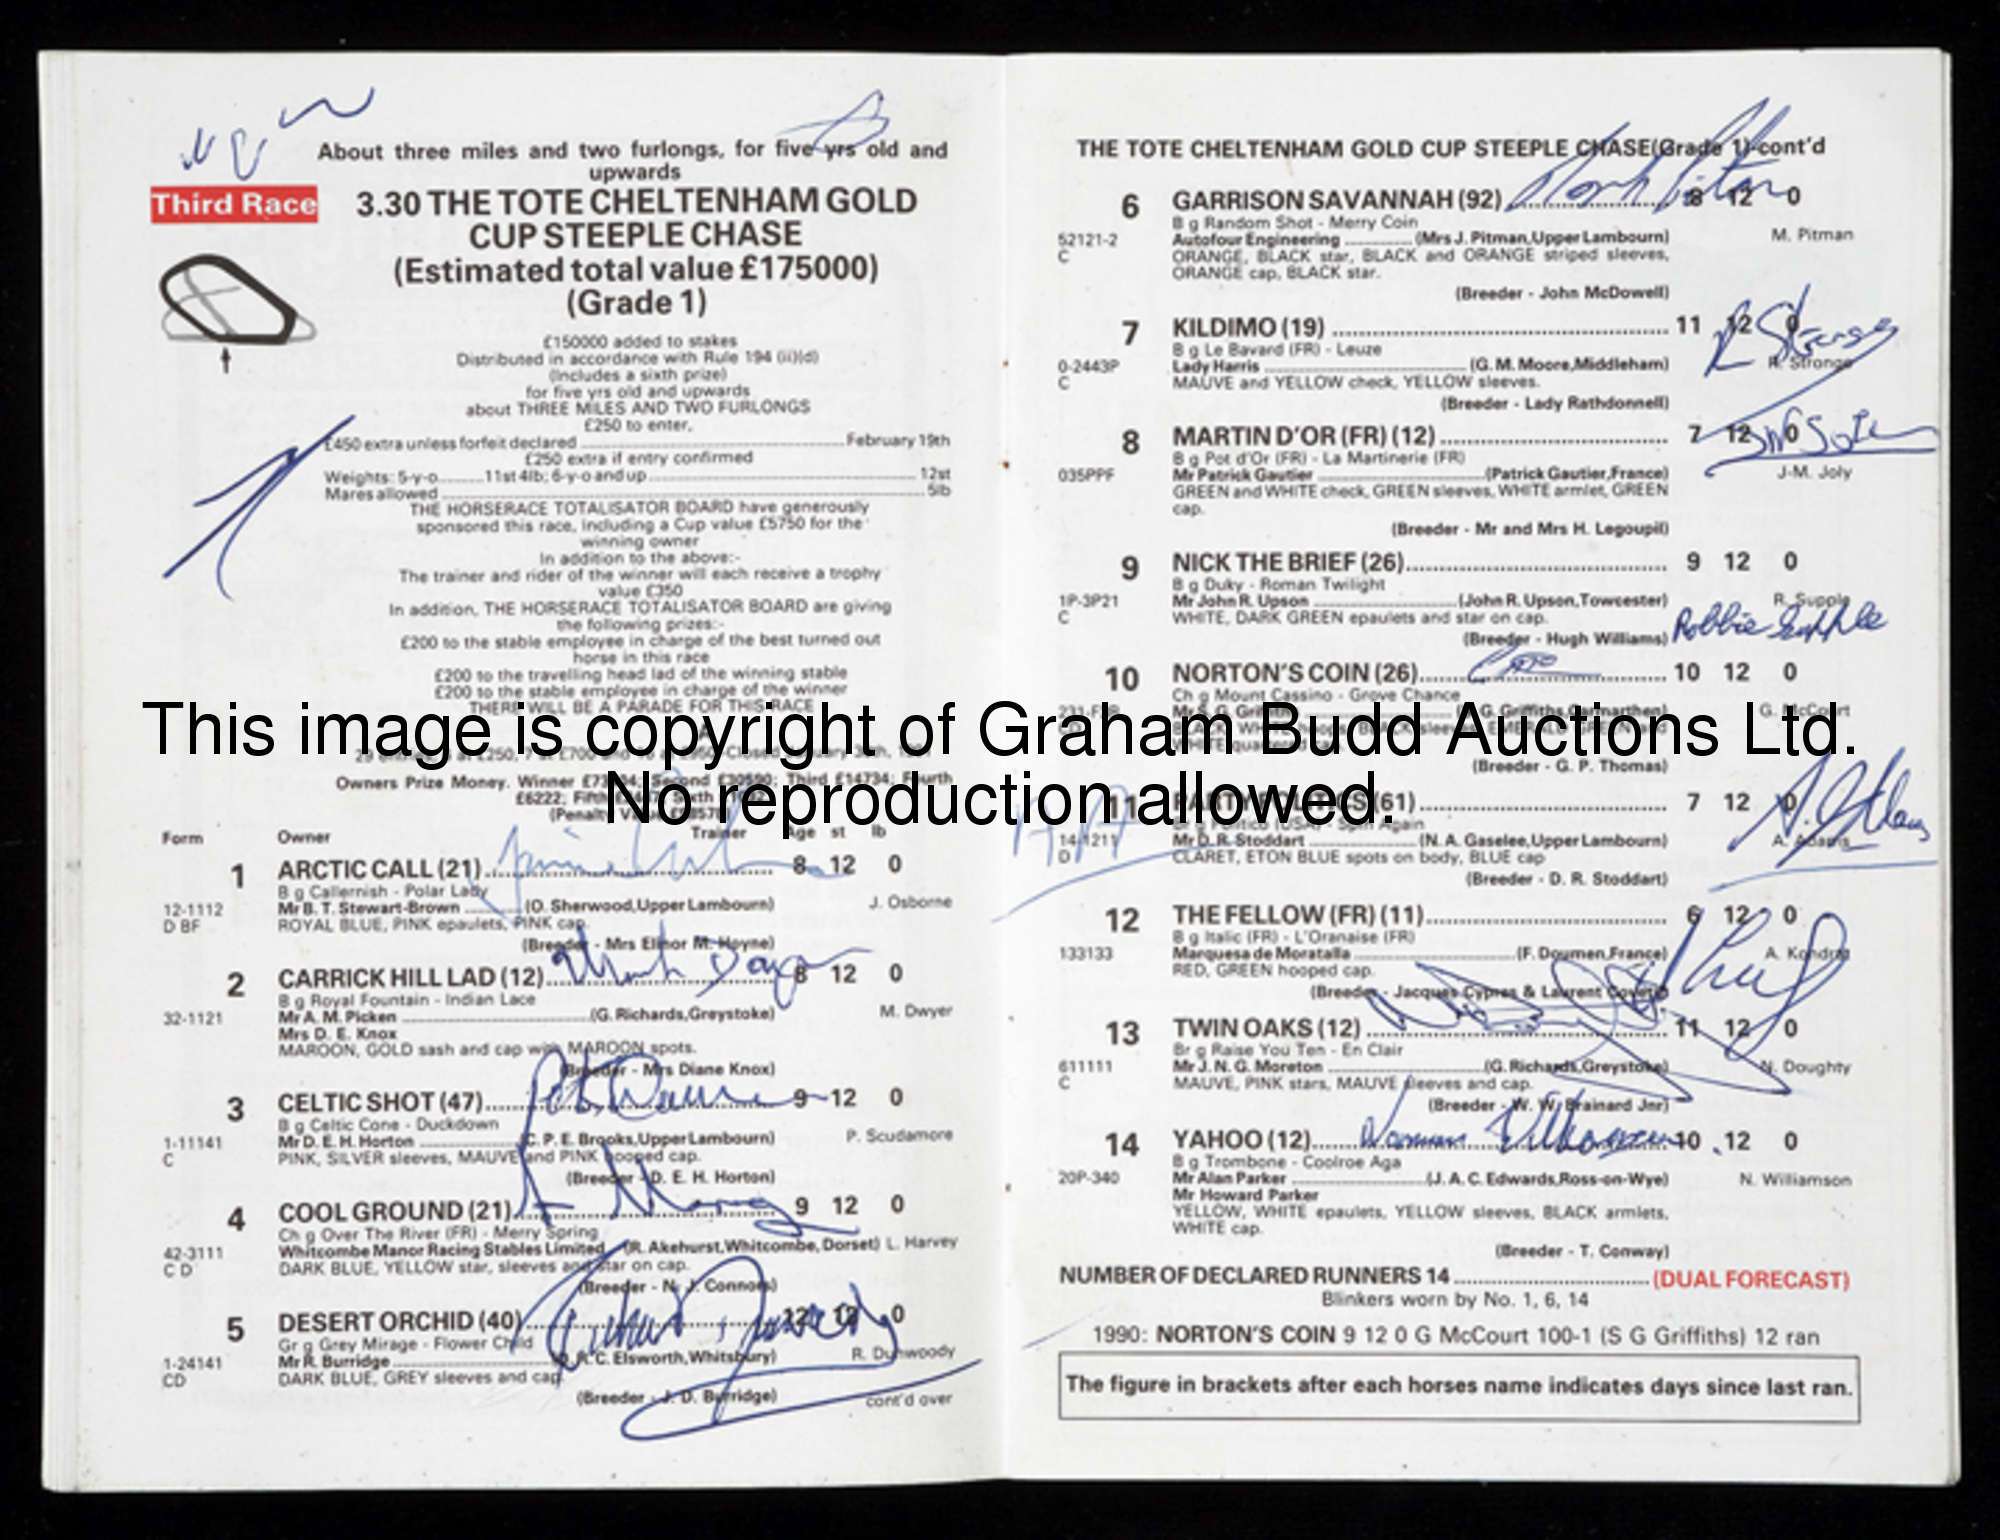 About three miles and two furlongs, for five yrs old and
upwards
Third Race
3.30 THE TOTE CHELTENHAM GOLD
CUP STEEPLE CHASE
(Estimated total value £175000)
(Grade 1)
£150000 added to stakes
Distributed in accordance with Rule 194 (ii)(d)
(Includes a sixth prize)
for five yrs old and upwards
about THREE MILES AND TWO FURLONGS
£250 to enter,
£450 extra unless forfeit declared February 19th
£250 extra if entry confirmed
Weights: 5-y-o 11st 4lb; 6-y-o and up 12st
Mares allowed 5lb
THE HORSERACE TOTALISATOR BOARD have generously
sponsored this race, including a Cup value £5750 for the
winning owner
In addition to the above:-
The trainer and rider of the winner will each receive a trophy
value £350
In addition, THE HORSERACE TOTALISATOR BOARD are giving
the following prizes:-
£200 to the stable employee in charge of the best turned out
horse in this race
£200 to the travelling head lad of the winning stable
£200 to the stable employee in charge of the winner
THERE WILL BE A PARADE FOR THIS RACE
This image is copyright of Graham Budd Auctions Ltd.
No reproduction allowed.
Owners Prize Money. Winner Second £30590; Third £14734; Fourth
£6222;
Form Owner Trainer Age st lb
1 ARCTIC CALL (21) 8 12 0
B g Callernish - Polar Lady
12-1112 Mr B. T. Stewart-Brown (O. Sherwood, Upper Lambourn) J. Osborne
D BF ROYAL BLUE, PINK epaulets, PINK cap.
(Breeder - Mrs Elinor M. Hoyne)
2 CARRICK HILL LAD (12) Mark Dwyer 8 12 0
B g Royal Fountain - Indian Lace
32-1121 Mr A. M. Picken (G. Richards, Greystoke) M. Dwyer
Mrs D. E. Knox
MAROON, GOLD sash and cap with MAROON spots.
(Breeder - Mrs Diane Knox)
3 CELTIC SHOT (47) 9 12 0
B g Celtic Cone - Duckdown
1-11141 Mr D. E. H. Horton (C. P. E. Brooks, Upper Lambourn) P. Scudamore
C PINK, SILVER sleeves, MAUVE and PINK hooped cap.
(Breeder - D. E. H. Horton)
4 COOL GROUND (21) 9 12 0
Ch g Over The River (FR) - Merry Spring
42-3111 Whitcombe Manor Racing Stables Limited (R. Akehurst, Whitcombe, Dorset) L. Harvey
C D DARK BLUE, YELLOW star, sleeves and star on cap.
(Breeder - N. J. Connors)
5 DESERT ORCHID (40) Richard Dunwoody 12 12 0
Gr g Grey Mirage - Flower Child
1-24141 Mr R. Burridge (D. R. C. Elsworth, Whitsbury) R. Dunwoody
CD DARK BLUE, GREY sleeves and cap
(Breeder - J. D. Burridge) cont'd over
THE TOTE CHELTENHAM GOLD CUP STEEPLE CHASE(Grade 1)-cont'd
6 GARRISON SAVANNAH (92) Mark Pitman 8 12 0
B g Random Shot - Merry Coin
52121-2 Autofour Engineering (Mrs J. Pitman, Upper Lambourn) M. Pitman
C ORANGE, BLACK star, BLACK and ORANGE striped sleeves,
ORANGE cap, BLACK star.
(Breeder - John McDowell)
7 KILDIMO (19) 11 12 0
B g Le Bavard (FR) - Leuze
0-2443P Lady Harris (G. M. Moore, Middleham) R. Stronge
C MAUVE and YELLOW check, YELLOW sleeves.
(Breeder - Lady Rathdonnell)
8 MARTIN D'OR (FR) (12) 7 12 0
B g Pot d'Or (FR) - La Martinerie (FR)
035PPF Mr Patrick Gautier (Patrick Gautier, France) J-M. Joly
GREEN and WHITE check, GREEN sleeves, WHITE armlet, GREEN
cap.
(Breeder - Mr and Mrs H. Legoupil)
9 NICK THE BRIEF (26) 9 12 0
B g Duky - Roman Twilight
1P-3P21 Mr John R. Upson (John R. Upson, Towcester) R. Supple
C WHITE, DARK GREEN epaulets and star on cap.
(Breeder - Hugh Williams) Robbie Supple
10 NORTON'S COIN (26) 10 12 0
Ch g Mount Cassino - Grove Chance
G. McCourt
(Breeder - G. P. Thomas)
11 PARTY POLITICS (61) 7 12 0
Br g Politico (USA) - Spin Again
14-1211 Mr D. R. Stoddart (N. A. Gaselee, Upper Lambourn) A. Adams
D CLARET, ETON BLUE spots on body, BLUE cap
(Breeder - D. R. Stoddart)
12 THE FELLOW (FR) (11) 6 12 0
B g Italic (FR) - L'Oranaise (FR)
133133 Marquesa de Moratalla (F. Doumen, France) A. Kondrat
RED, GREEN hooped cap.
(Breeder - Jacques Cypres & Laurent
13 TWIN OAKS (12) 11 12 0
Br g Raise You Ten - En Clair
611111 Mr J. N. G. Moreton (G. Richards, Greystoke) N. Doughty
C MAUVE, PINK stars, MAUVE sleeves and cap.
(Breeder - W. W. Brainard Jnr)
14 YAHOO (12) Norman Williamson 10 12 0
B g Trombone - Coolroe Aga
20P-340 Mr Alan Parker (J. A. C. Edwards, Ross-on-Wye) N. Williamson
Mr Howard Parker
YELLOW, WHITE epaulets, YELLOW sleeves, BLACK armlets,
WHITE cap.
(Breeder - T. Conway)
NUMBER OF DECLARED RUNNERS 14 (DUAL FORECAST)
Blinkers worn by No. 1, 6, 14
1990: NORTON'S COIN 9 12 0 G McCourt 100-1 (S G Griffiths) 12 ran
The figure in brackets after each horses name indicates days since last ran.